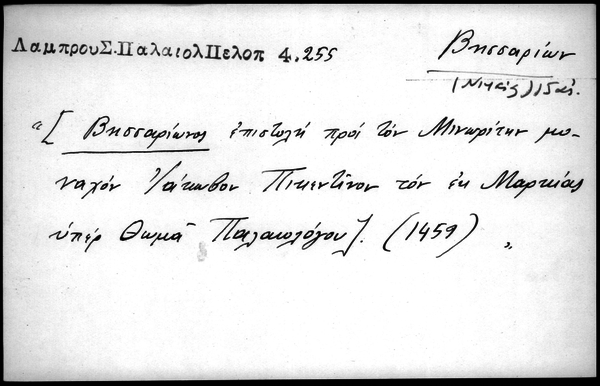 ΛαμπρουΣ.ΠαλαιολΠελοπ 4.255
Βησσαρίων
(Νικαίας)
"[Βησσαρίωνος ἐπιστολή πρός τόν Μινωρίτην μο-
ναχόν Ἰάκωβον Πικεντῖνον τόν ἐκ Μαρκίας
ὑπέρ Θωμᾶ Παλαιολόγου]. (1459) "